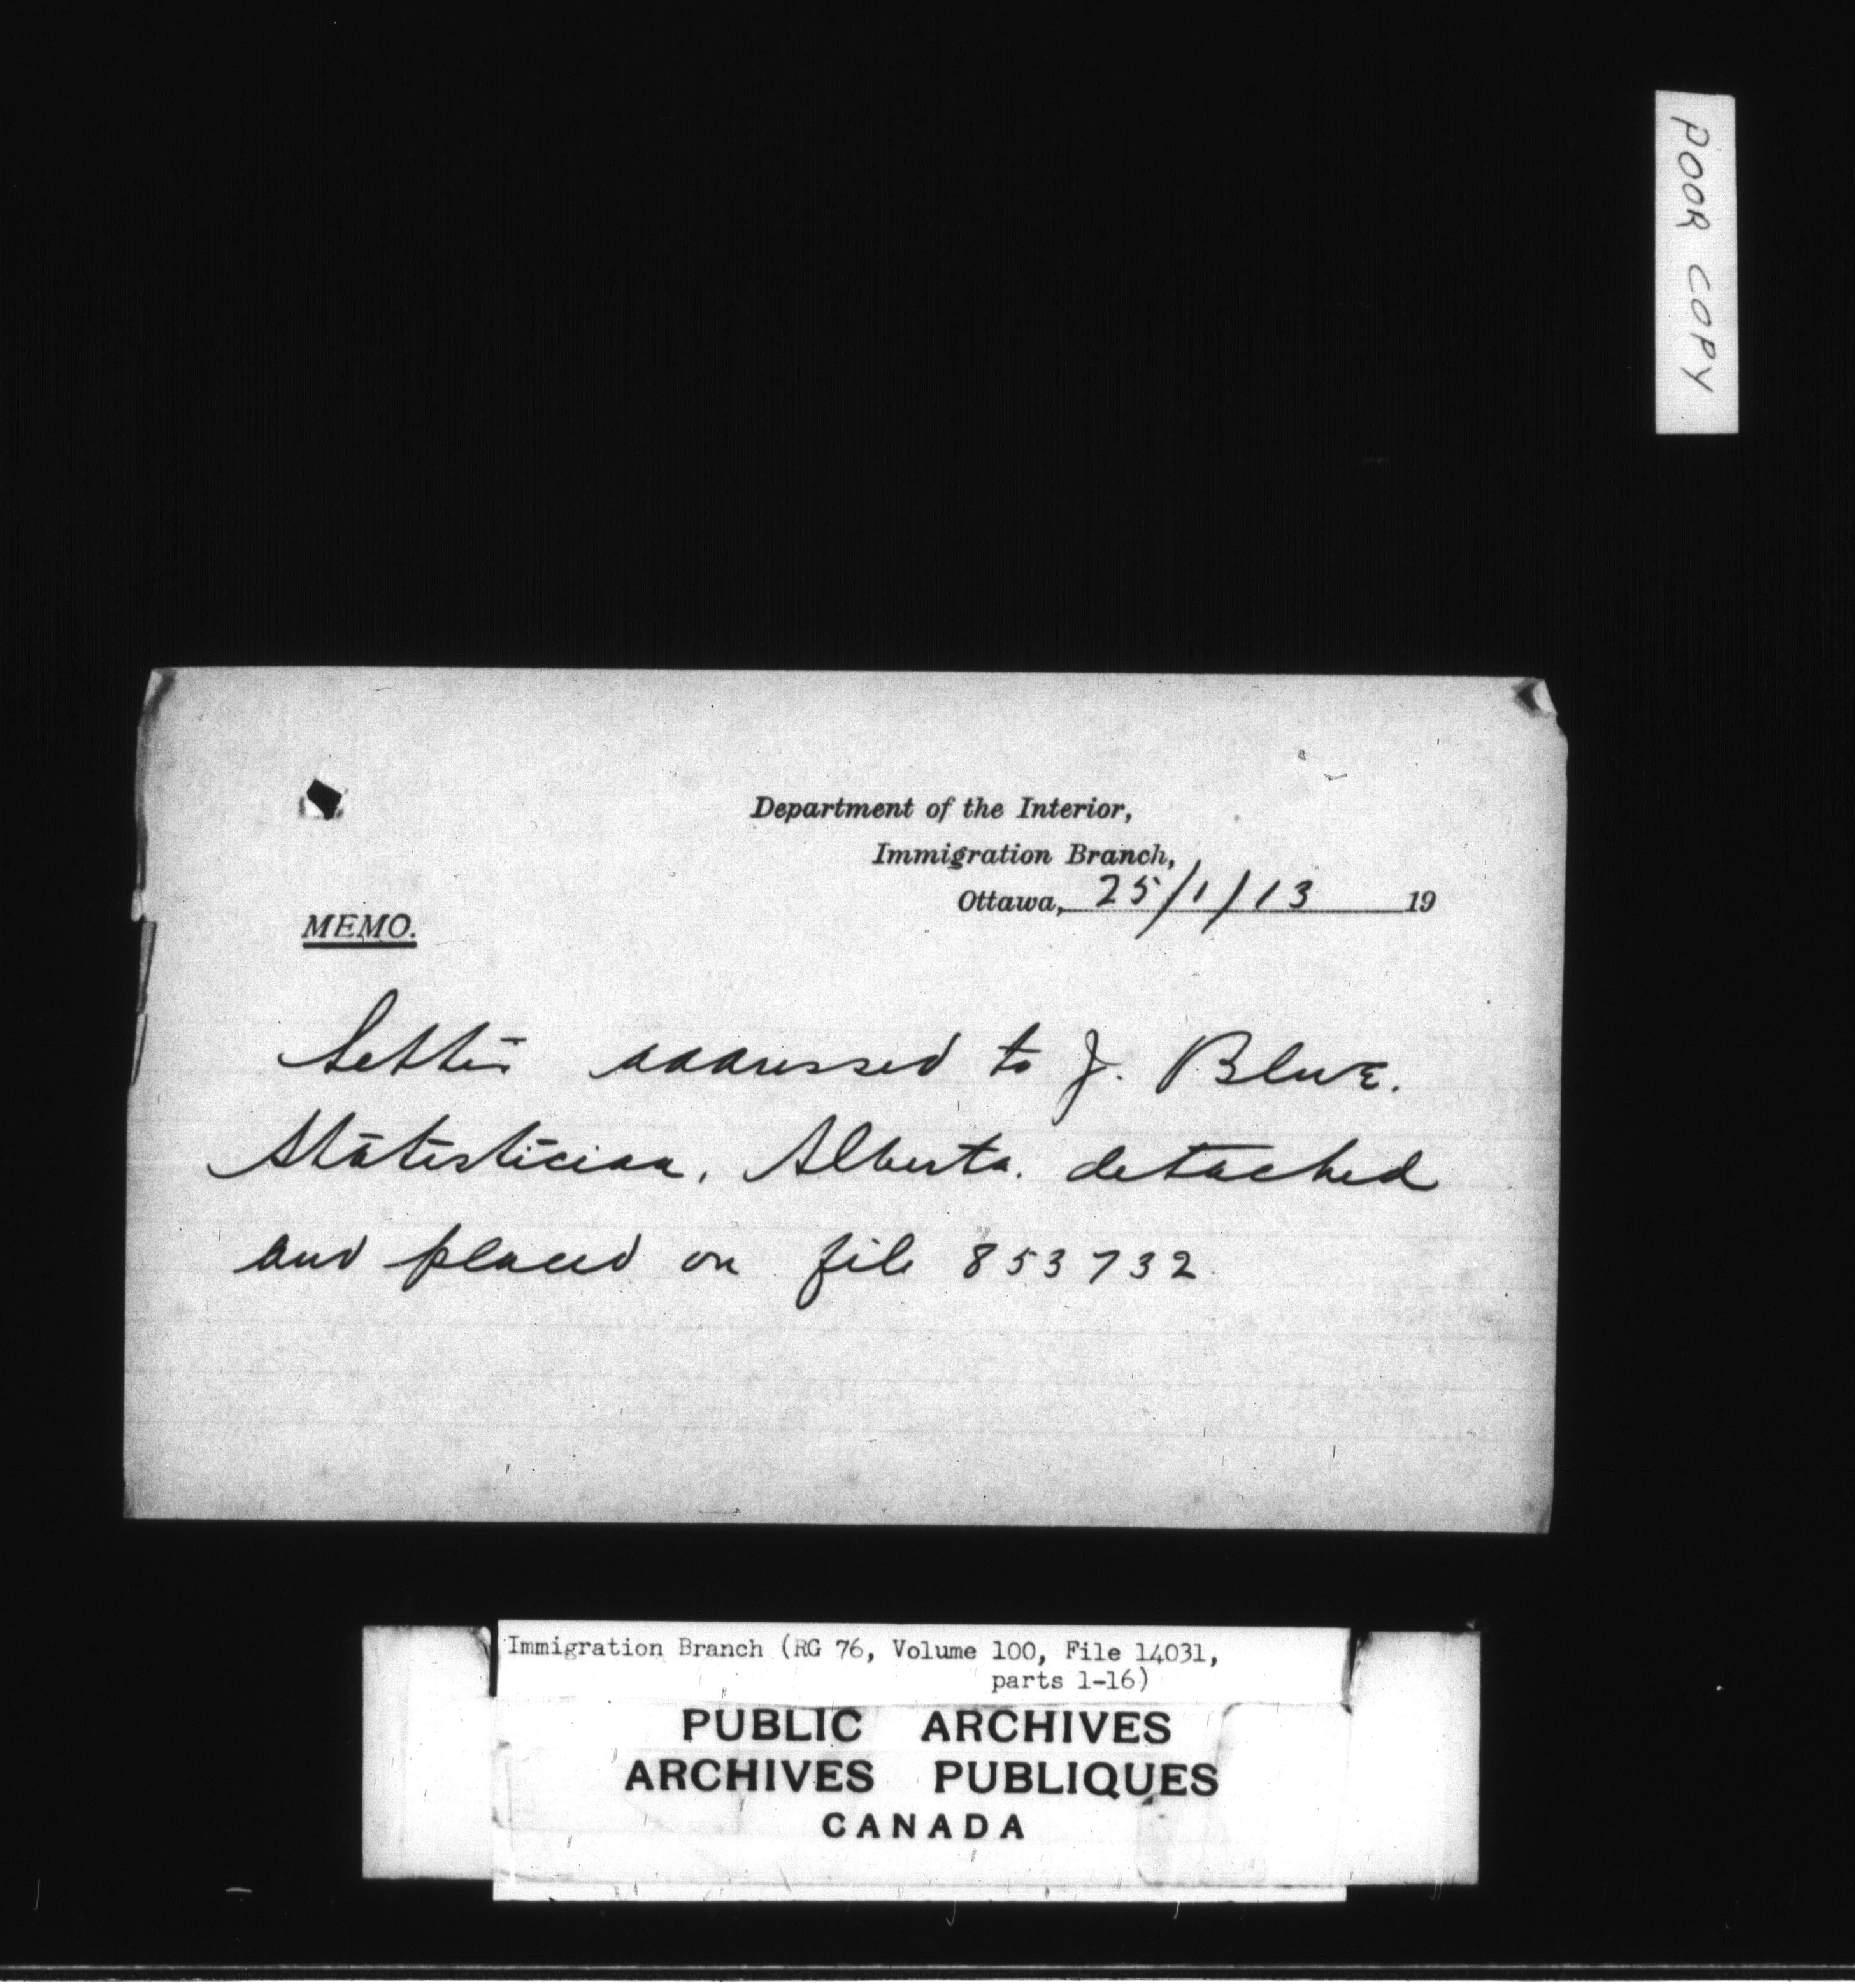 POOR COPY
Department of the Interior,
Immigration Branch,
Ottawa, 25/1/13 19
MEMO.
Letter addressed to J. Blue.
Statistician, Alberta. detached
and placed on file 853732
Immigration Branch (RG 76, Volume 100, File 14031,
parts 1-16)
PUBLIC ARCHIVES
ARCHIVES PUBLIQUES
CANADA